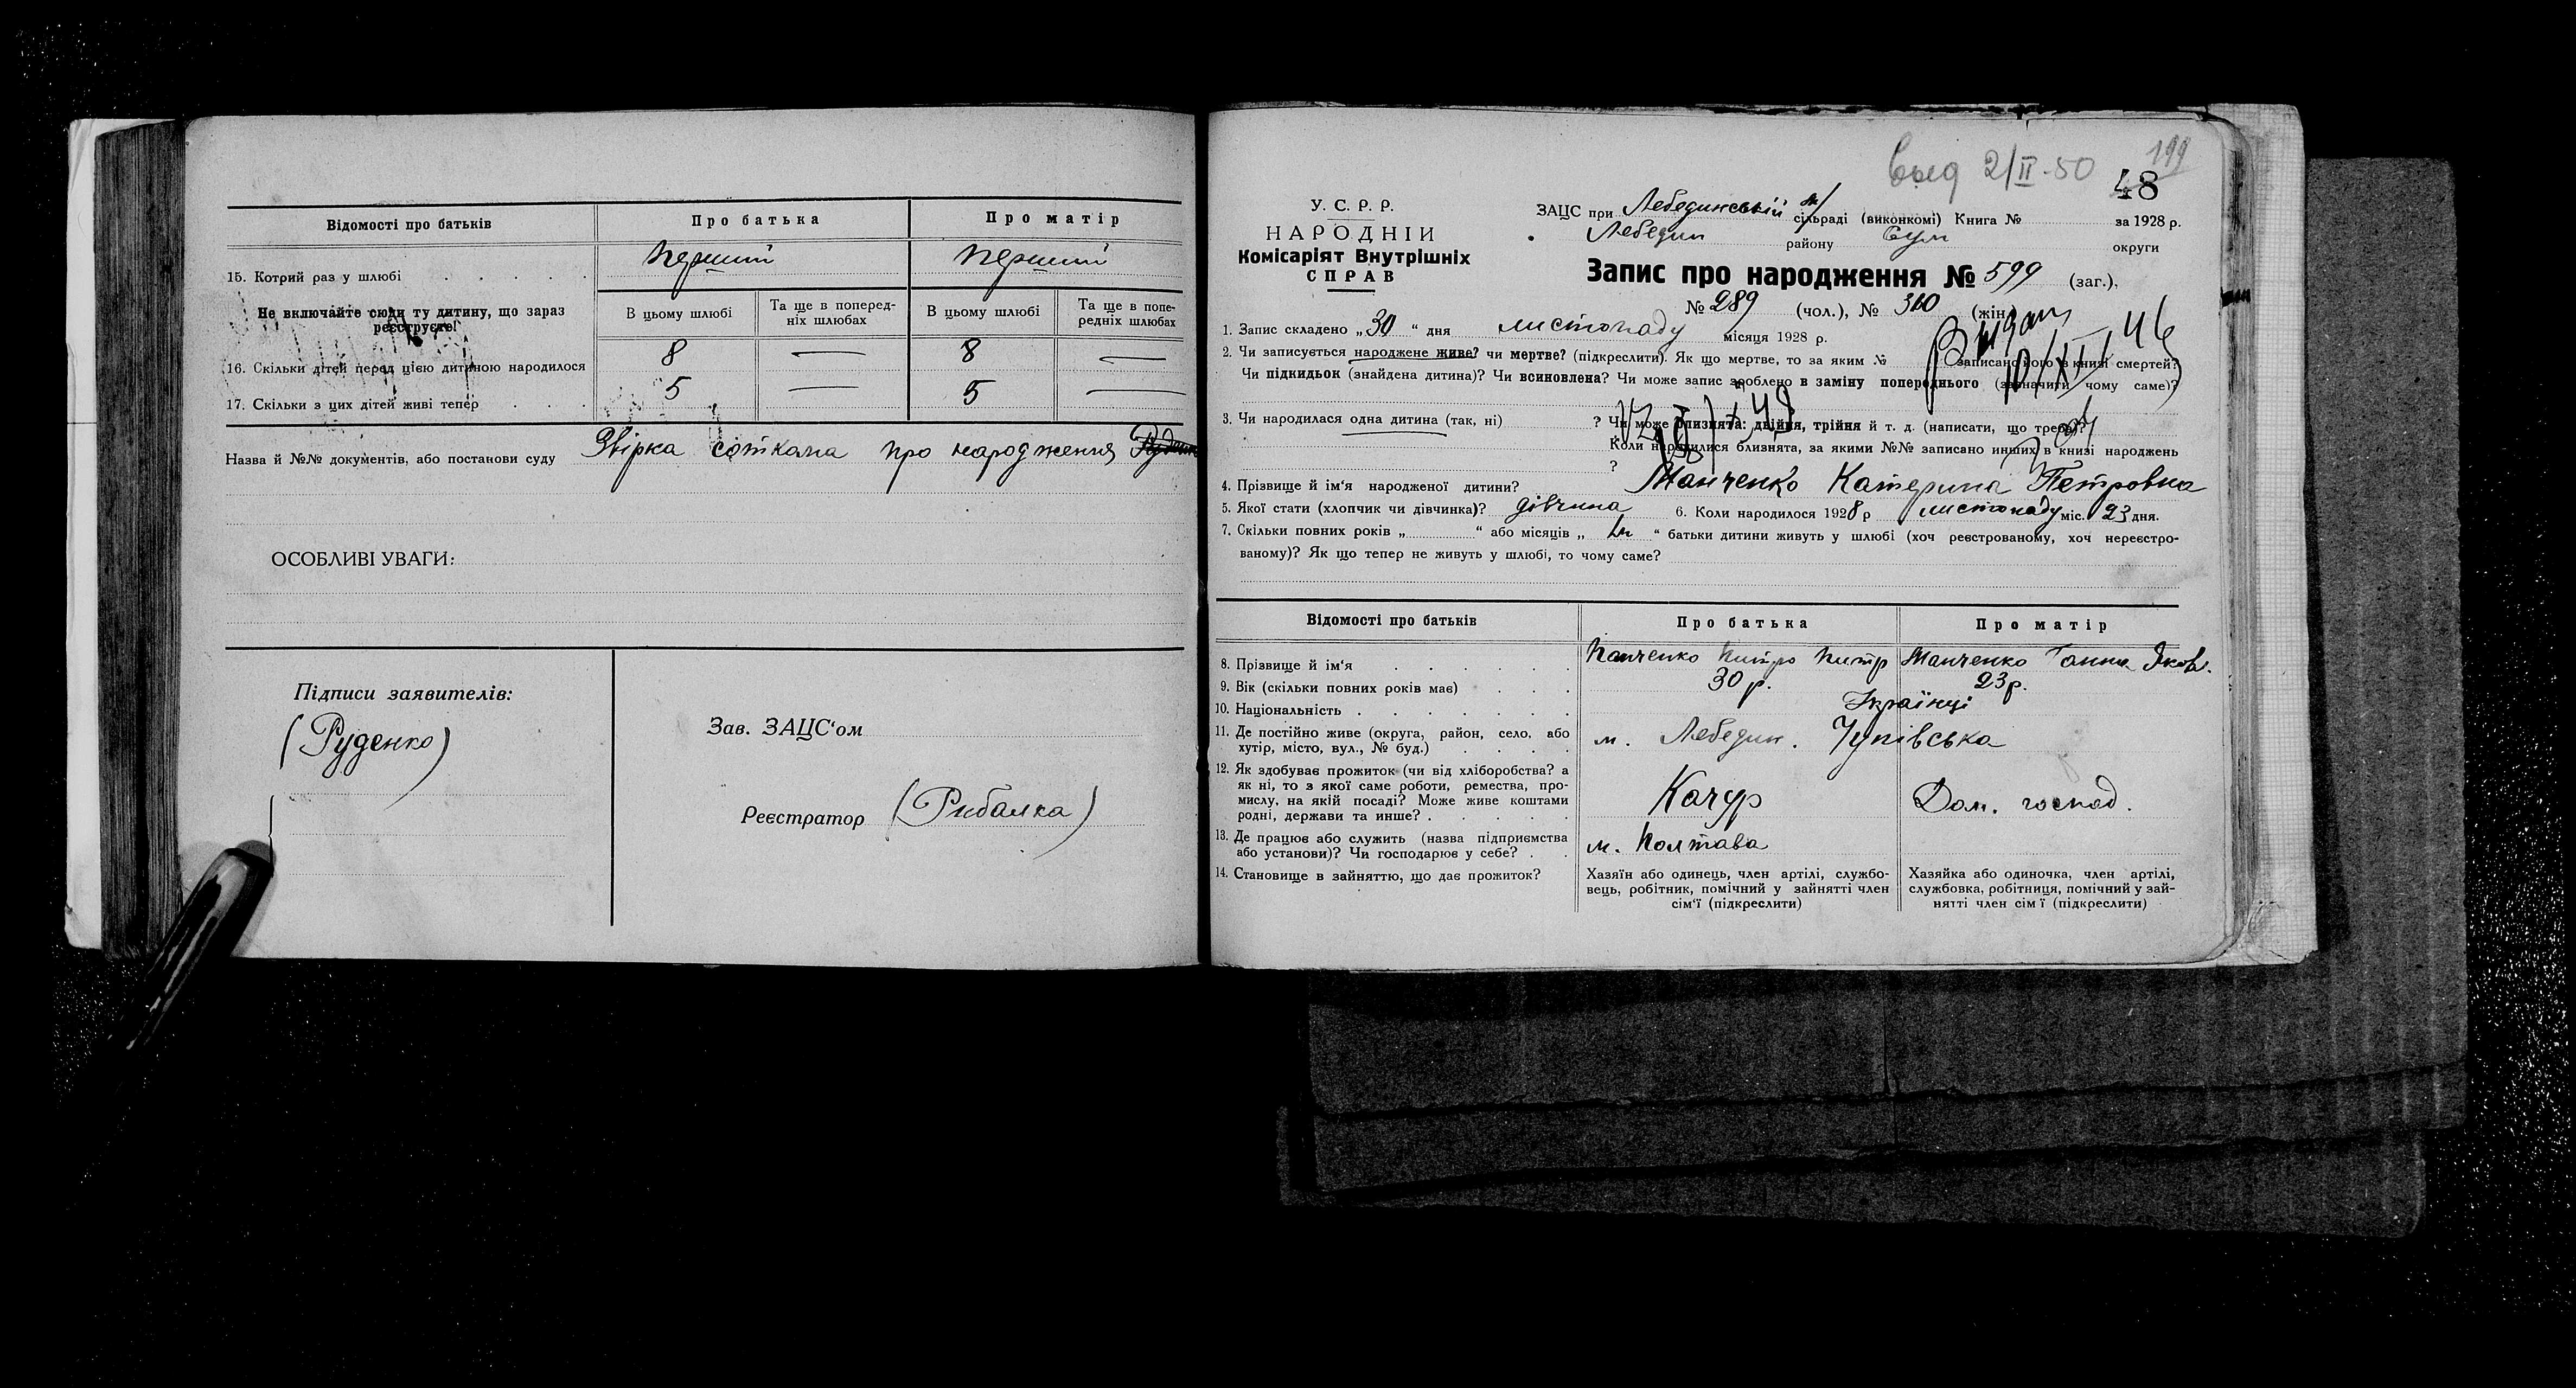 Відомості про батьків
Про батька
Про матір
15. Котрий раз у шлюбі
перший
перший
Не включайте сюди ту дитину, що зараз реєструєте!
В цьому шлюбі
Та ще в поперед-
ніх шлюбах
В цьому шлюбі
Та ще в попе-
редніх шлюбах
16. Скільки дітей перед цією дитиною народилося
8 — 8 —
17. Скільки з цих дітей живі тепер
5 — 5 —
Назва й №№ документів, або постанови суду
Звірка про народження
ОСОБЛИВІ УВАГИ:
Підписи заявителів:
(Руденко)
Зав. ЗАЦС'ом
Реєстратор (Рибалка)
199
2/II-50
48
У. С. Р. Р.
НАРОДНІЙ
Комісаріят Внутрішніх
СПРАВ
ЗАЦС при Лебединській м/сільраді (виконкомі) Книга № за 1928 р.
Лебедин району Сум округи
Запис про народження № 599 (заг.),
№ 289 (чол.), № 310 (жін.)
1. Запис складено „30“ дня листопаду місяця 1928 р.
2. Чи записується народжене живе? чи мертве? (підкреслити). Як що мертве, то за яким № записано його в книзі смертей?
Чи підкидьок (знайдена дитина)? Чи всиновлена? Чи може запис зроблено в заміну попереднього (зазначити чому саме)?
3. Чи народилася одна дитина (так, ні) ? Чи може близнята: двійня, трійня й т. д. (написати, що треба)?
Коли народилися близнята, за якими №№ записано инших в книзі народжень
?
4. Прізвище й ім'я народженої дитини? Манченко Катерина Петровна
5. Якої стати (хлопчик чи дівчинка)? дівчина 6. Коли народилося 1928 р листопаду міс. 23 дня.
7. Скільки повних років „ “ або місяців „ “ батьки дитини живуть у шлюбі (хоч реєстрованому, хоч нереєстро-
ваному)? Як що тепер не живуть у шлюбі, то чому саме?
Відомості про батьків
Про батька
Про матір
8. Прізвище й ім'я
Манченко Ганна Яков.
9. Вік (скільки повних років має)
30 р.
23 р.
10. Національність
Українці
11. Де постійно живе (округа, район, село, або
хутір, місто, вул., № буд.)
м. Лебедин.
12. Як здобуває прожиток (чи від хліборобства? а
як ні, то з якої саме роботи, ремества, про-
мислу, на якій посаді? Може живе коштами
родні, держави та инше?
Дом. господ.
13. Де працює або служить (назва підприємства
або установи)? Чи господарює у себе?
м. Полтава
14. Становище в зайняттю, що дає прожиток?
Хазяїн або одинець, член артілі, службо-
вець, робітник, помічний у зайнятті член
сім'ї (підкреслити)
Хазяйка або одиночка, член артілі,
службовка, робітниця, помічний у зай-
нятті член сім'ї (підкреслити)